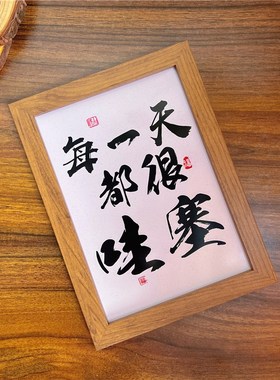 每一天
都很
哇塞